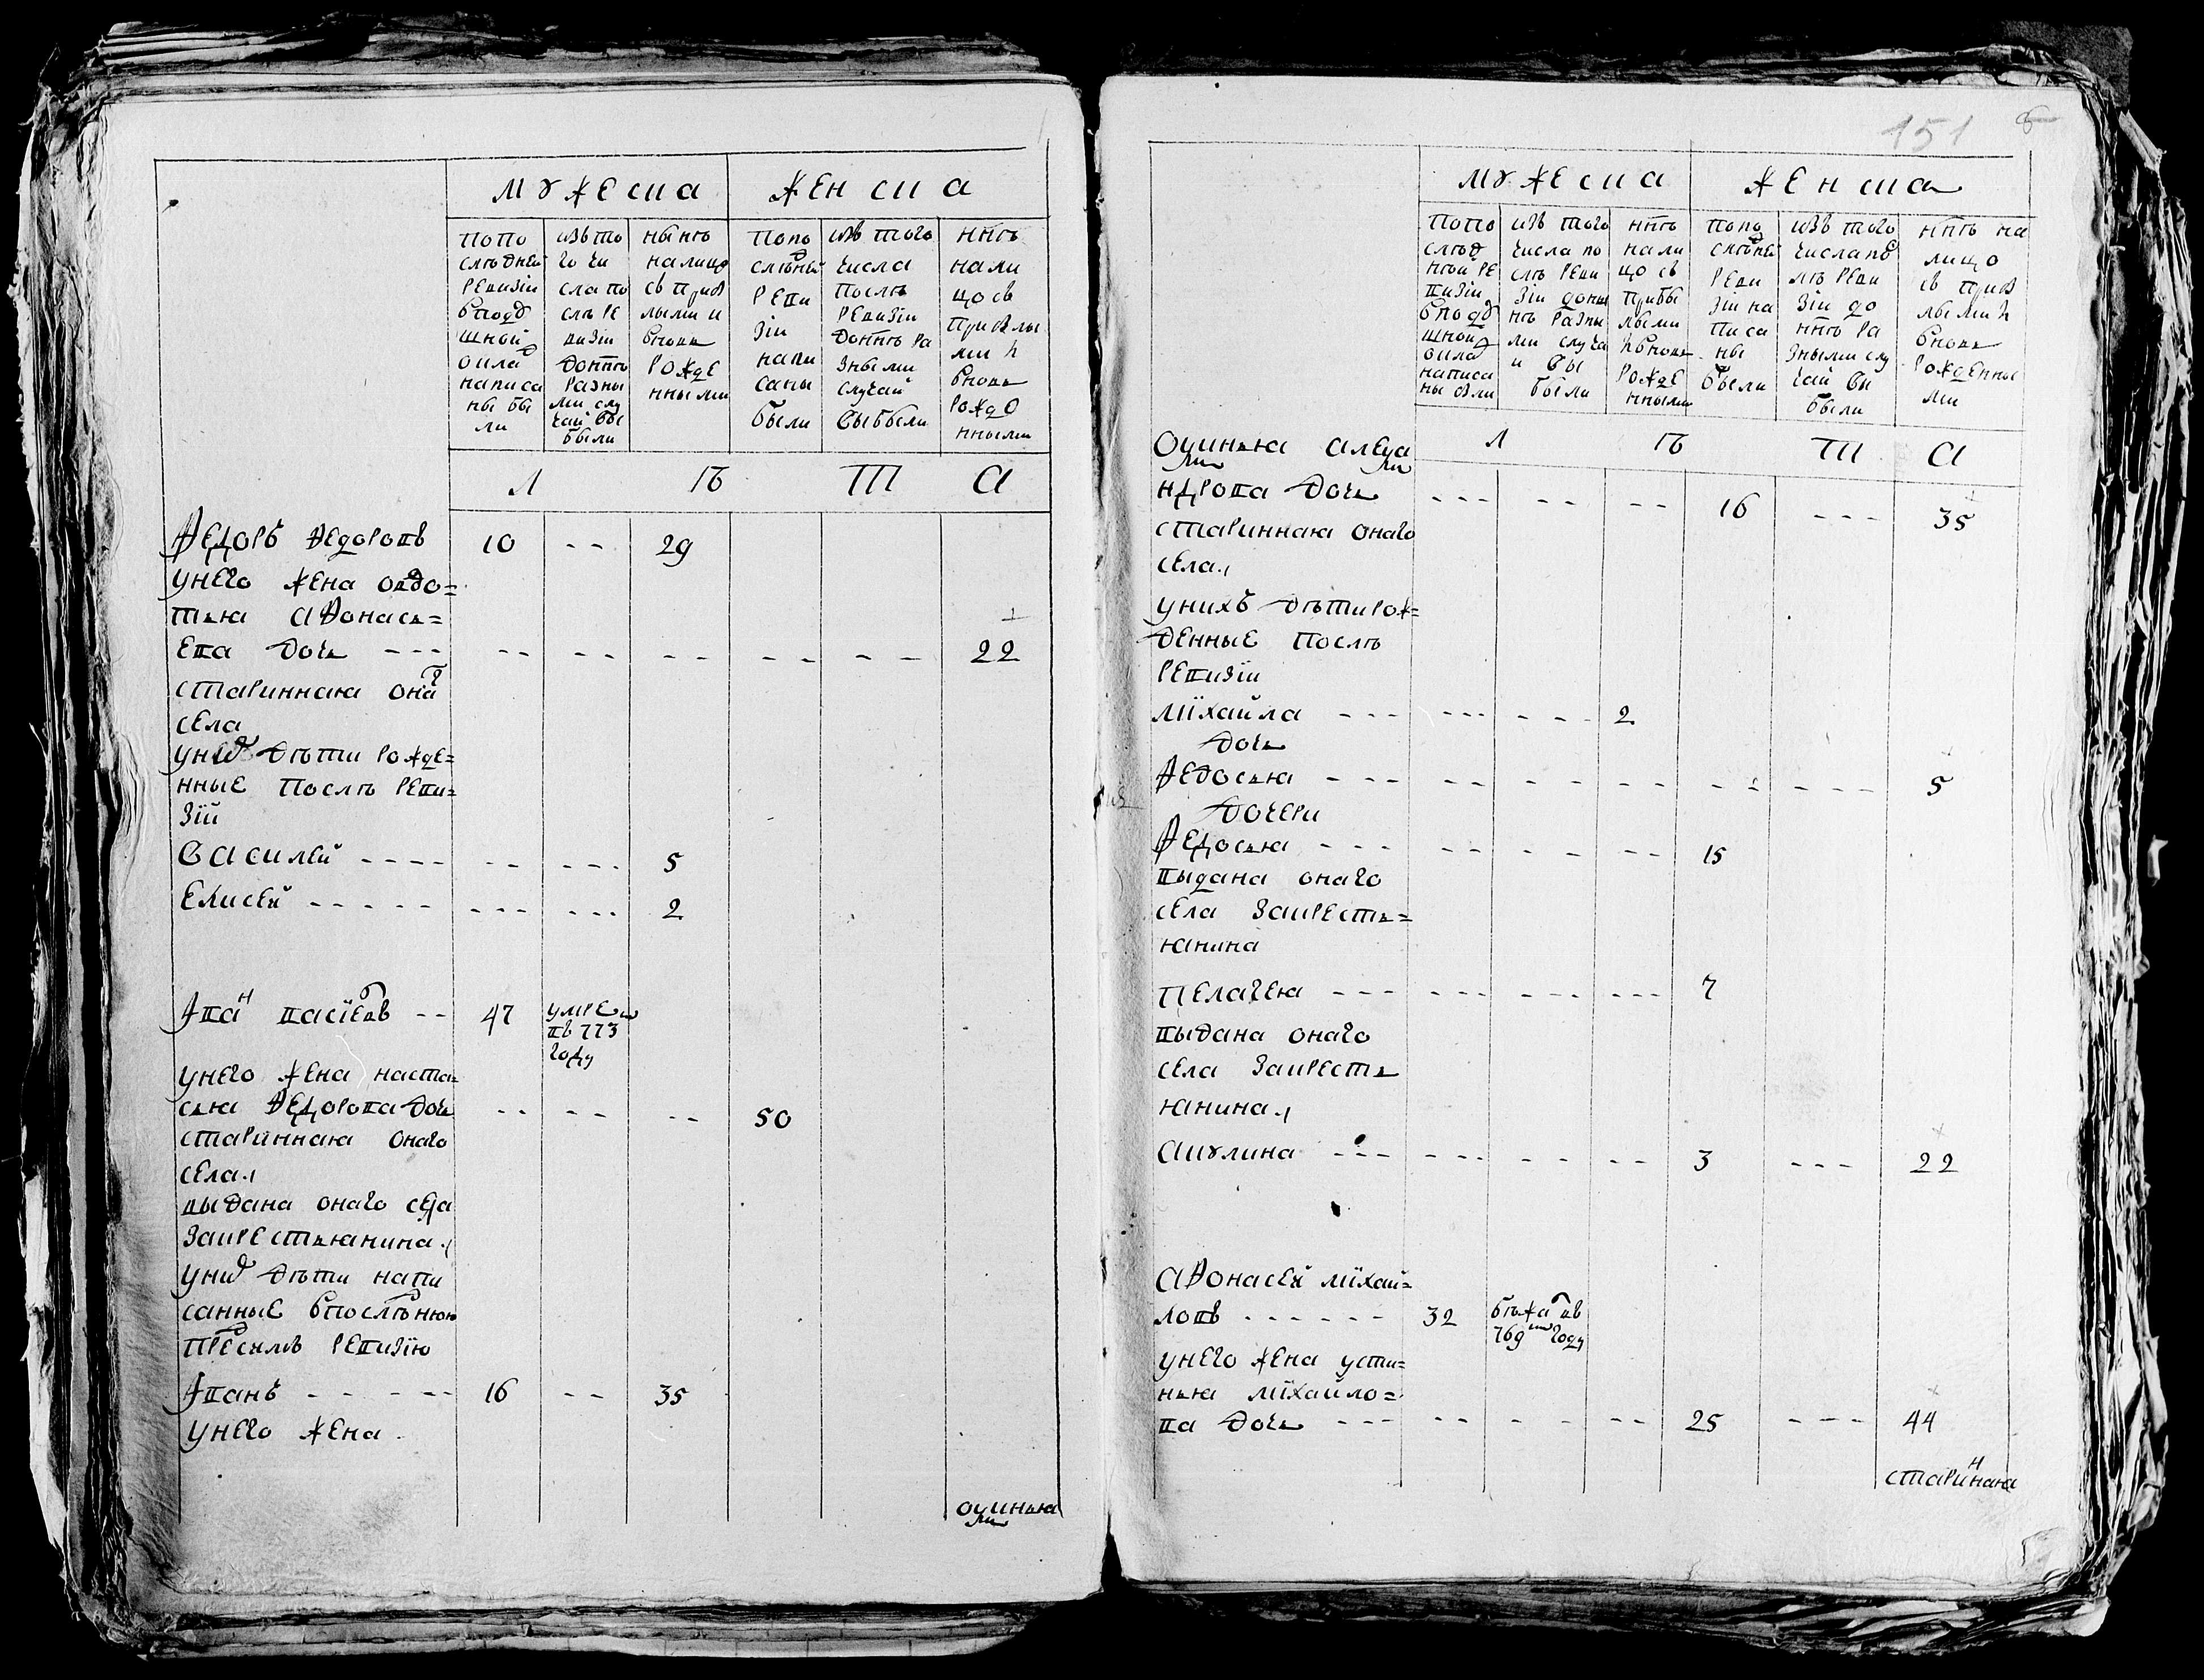 мужеска женска
попо
следней
ревизіи
вподу
шной
окладъ
написа
ны бы
ли
изъ то
го чи
сла по
сле ре
визіи
донне
разны
ми слу
чаи вы
были
ныне
налицо
съ приб
лыми и
вновь
рожде
нными
попо
следней
реви
зіи
напи
саны
были
изъ того
числа
после
ревизіи
донне ра
зными
случаи
выбыли
нне
нали
цо съ
прибылы
ми и
вновь
рождо
нными
л ѣ т а
Федоръ Федоровъ 10 -- 29
унего жена овдо=
тья афонась=
ева дочь --- -- -- -- -- -- 22
стариннаѧ онаг
села
униⷯ дѣти рожде=
нные послѣ реви=
зіи
василей ---- -- --- 5
Елисей ----- --- --- 2
Иваⁿ васильевъ -- 47 умре
въ 773
году
унего жена наста=
сья Федорова дочь -- -- -- 50
стариннаѧ онаго
села.
выдана онаго села
закрестьянина.
униⷯ дѣти напи
санные впоследнюю
пред симъ ревизію
Иванъ ----- 16 -- 35
унего жена
окинья
151
мужеска женска
попо
след
ней ре
визіи
вподу
шной
окладъ
написа
ны были
изъ того
числа по
сле реви
зіи доны
не разны
ми случа
и вы
были
нне
нали
цо съ
прибы
лыми
ивновь
рожде
нными
попо
следней
реви
зіи на
писа
ны
были
изъ того
числа по
сле реви
зіи до
нне ра
зными слу
чаи вы
были
нне на
лицо
съ приб
лыми и
вновь
рожденны
ми
л ѣ т а
Окинья алекса
ндрова дочь --- -- -- 16 --- 35
стариннаѧ онаго
села.
унихъ дѣти рож=
денные послѣ
ревизіи
михайла --- --- --- 2
дочь
Федосья --- -- -- -- -- --- 5
дочери
Федосья --- -- -- -- 15
выдана онаго
села закресть=
янина
Пелагея --- --- --- --- 7
выдана онаго
села закресть
янина.
акулина --- --- -- -- 3 --- 22
афонасей михай=
ловъ ------ 32 бѣжалъ въ
769ᵐ году
унего жена усти=
нья михайло=
ва дочь --- -- -- -- 25 --- 44
стариннаѧ